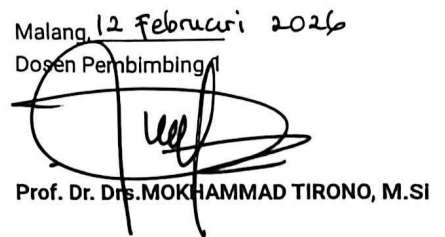 Malang, 12 Februari 2026
Dosen Pembimbing I
Prof. Dr. Drs.MOKHAMMAD TIRONO, M.Si